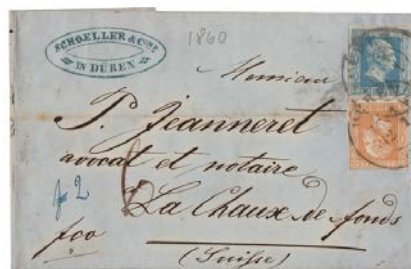 SCHOELLER & Cie
IN DÜREN
1860
Monsieur
P. Jeanneret
avocat et notaire
La Chaux de fonds
fco
(Suisse)